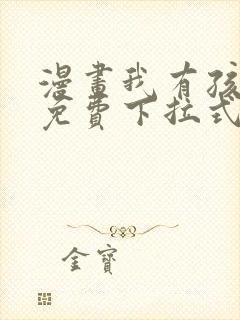 漫畫我有孩
免費下拉式
金寶